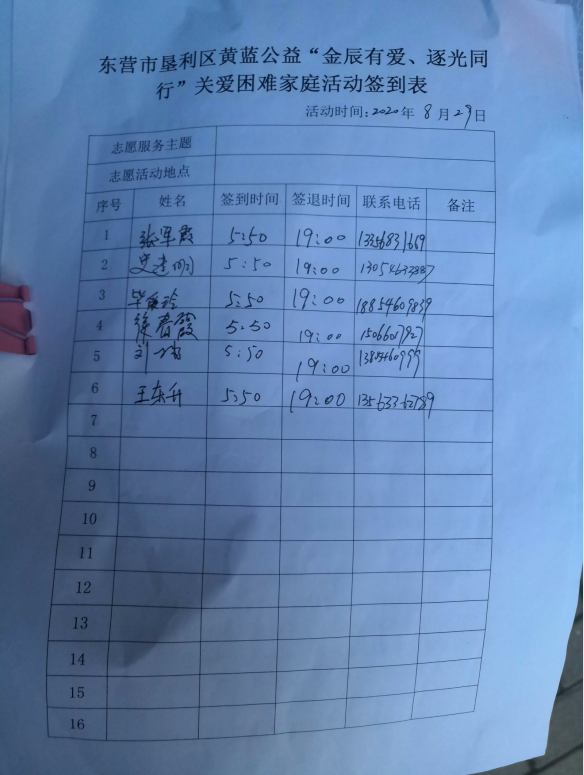 东营市垦利区黄蓝公益“金辰有爱、逐光同
行”关爱困难家庭活动签到表
活动时间:2020年 8 月 29 日
志愿服务主题
志愿活动地点
序号 姓名 签到时间 签退时间 联系电话 备注
1 张军霞 5:50 19:00
2 5:50 19:00
3 5:50 19:00
4 徐春霞 5:50 19:00
5 5:50 19:00
6 王东升 5:50 19:00 13563362789
7
8
9
10
11
12
13
14
15
16